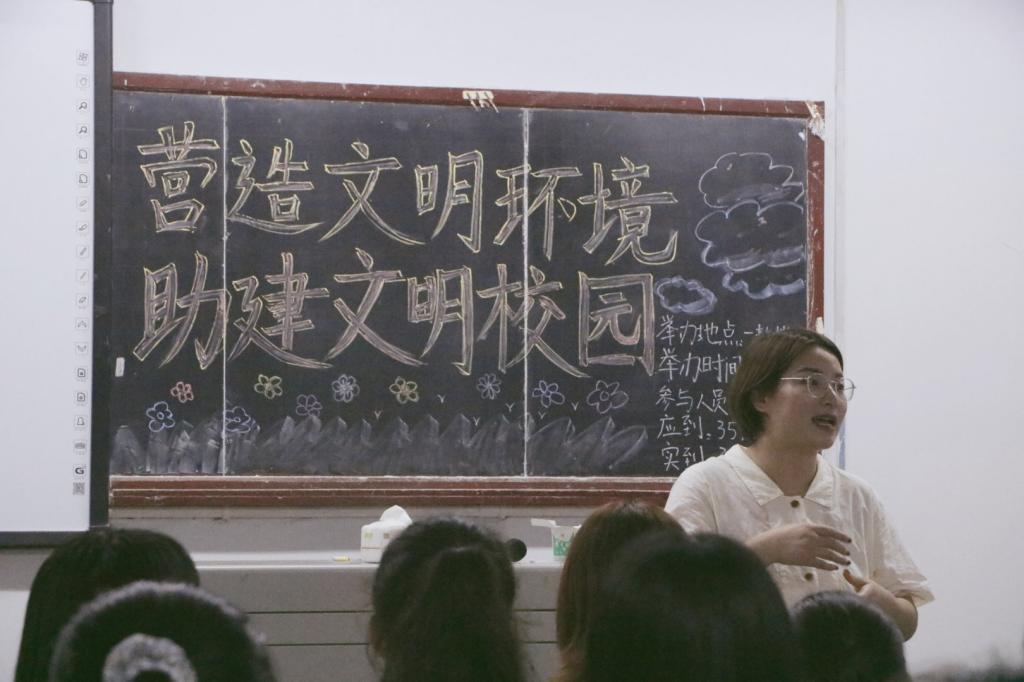 营造文明环境
助建文明校园
举办地点
举办时间
参与人员
应到:35
实到: